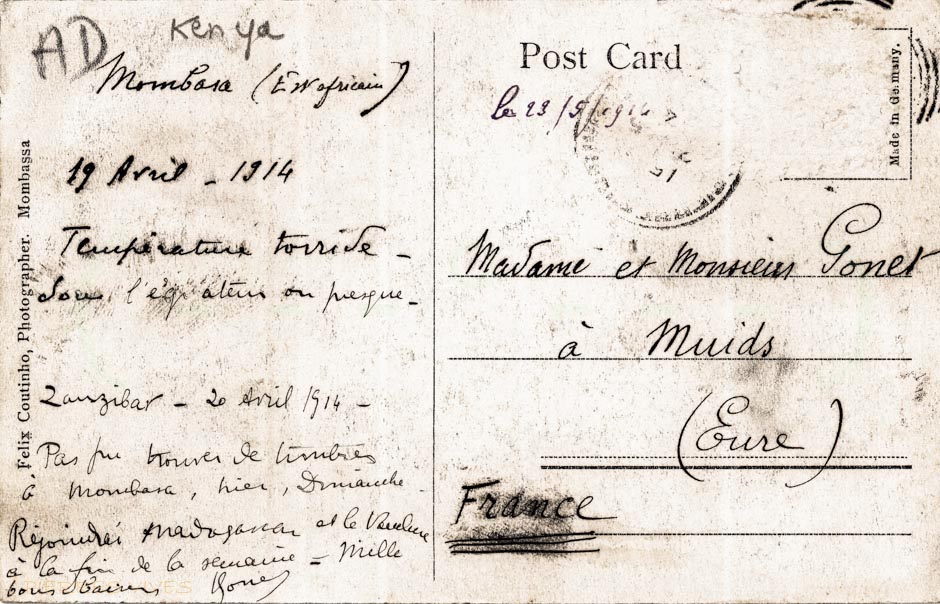 AD
Kenya
Mombasa (Est africain)
19 Avril - 1914
Température torride -
Sous l'équateur ou presque -
Zanzibar - 20 Avril 1914 -
Pas pu trouver de timbres
à Mombasa, hier, Dimanche -
Rejoindrai Madagascar et le Vaucluse
à la fin de la semaine - Mille
bons baisers
Felix Coutinho, Photographer. Mombassa
Post Card
le 23/5/1914
Made in Germany.
Madame et Monsieur Gonet
à Muids
(Eure)
France